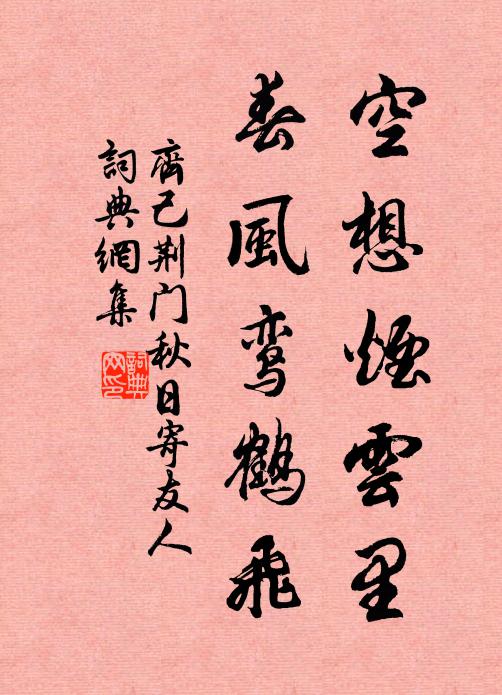 空想煙雲里
春風鸾鶴飛
齊己荆门秋日寄友人
詞典網集
詞典网印